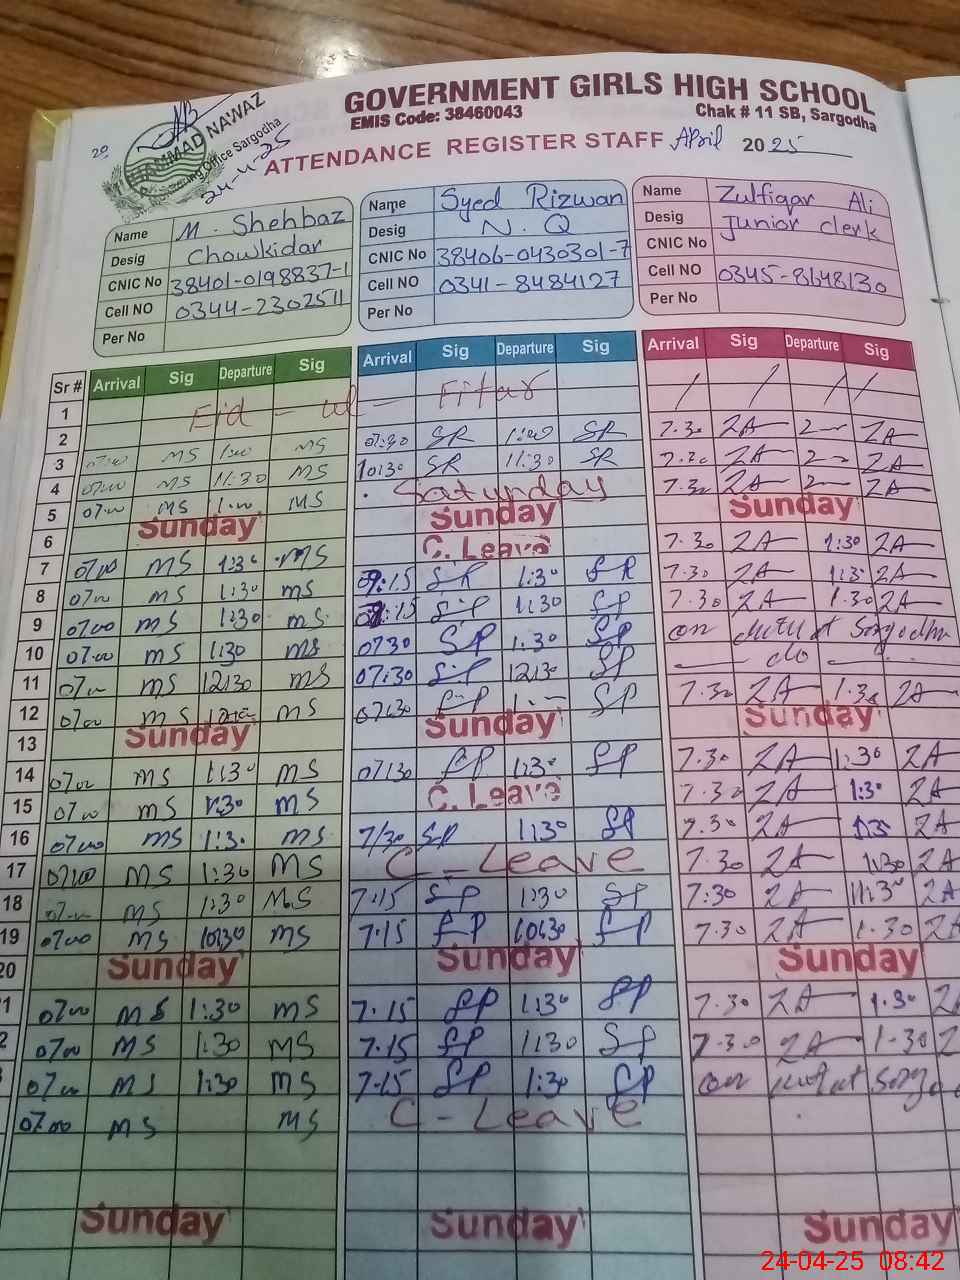 GOVERNMENT GIRLS HIGH SCHOOL
EMIS Code: 38460043
Chak # 11 SB, Sargodha
ATTENDANCE REGISTER STAFF April 2025
NAWAZ
Office Sargodha
24-4-25
Name M. Shehbaz
Desig Chowkidar
CNIC No 38401-0198837-1
Cell NO 0344-2302511
Per No
Name Syed Rizwan
Desig N.Q
CNIC No 38406-0430301-7
Cell NO 0341-8484127
Per No
Name Zulfiqar Ali
Desig Junior Clerk
CNIC No
Cell NO 0345-8648130
Per No
Sr # Arrival Sig Departure Sig Arrival Sig Departure Sig Arrival Sig Departure Sig
1 Eid-ul-Fitar / / / /
2 07:30 SR 1:00 SR 7.30 ZA 2 ZA
3 MS 1:00 MS 10:30 SR 11:30 SR 7.30 ZA 2 ZA
4 07:00 MS 11:30 MS Saturday 7.30 ZA 2 ZA
5 07:00 MS 1:00 MS
Sunday Sunday Sunday
6 C. Leave 7.30 ZA 1:30 ZA
7 0700 MS 1:30 MS 07:15 SR 1:30 SR 7.30 ZA 1:30 ZA
8 0700 MS 1:30 MS :15 SP 1:30 SP 7.30 ZA 1.30 ZA
9 0700 MS 1:30 MS 0730 SP 1:30 SP on Sargodha
10 07:00 MS 1:30 MS 07:30 SP 12:30 SP do
11 07 MS 12:30 MS 07:30 SP 1 SP 7.30 ZA 1.30 ZA
12 0700 MS MS
Sunday Sunday Sunday
13
14 0700 MS 1:30 MS 07:30 SP 1:30 SP 7.30 ZA 1:30 ZA
15 0700 MS 1:30 MS C. Leave 7.30 ZA 1:30 ZA
16 0700 MS 1:30 MS 7/30 SP 1:30 SP 7.30 ZA 1:30 ZA
17 07:00 MS 1:30 MS C-Leave 7.30 ZA 1:30 ZA
18 07:00 MS 1:30 MS 7:15 SP 1:30 SP 7:30 ZA 11:30 ZA
19 0700 MS 10:30 MS 7:15 SP 10:30 SP 7.30 ZA 1.30 ZA
20 Sunday Sunday Sunday
1 0700 MS 1:30 MS 7.15 SP 1:30 SP 7.30 ZA 1.30
2 0700 MS 1:30 MS 7.15 SP 1:30 SP 7.30 ZA 1.30
0700 MS 1:30 MS 7.15 SP 1:30 SP on
0700 MS MS C-Leave
Sunday Sunday Sunday
24-04-25 08:42